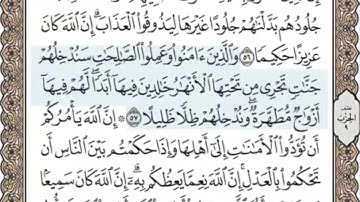 جُلُودُهُم بَدَّلْنَٰهُمْ جُلُودًا غَيْرَهَا لِيَذُوقُوا۟ ٱلْعَذَابَ ۗ إِنَّ ٱللَّهَ كَانَ
عَزِيزًا حَكِيمًا ٥٦ وَٱلَّذِينَ ءَامَنُوا۟ وَعَمِلُوا۟ ٱلصَّٰلِحَٰتِ سَنُدْخِلُهُمْ
جَنَّٰتٍ تَجْرِى مِن تَحْتِهَا ٱلْأَنْهَٰرُ خَٰلِدِينَ فِيهَآ أَبَدًا ۖ لَّهُمْ فِيهَآ
أَزْوَٰجٌ مُّطَهَّرَةٌ ۖ وَنُدْخِلُهُمْ ظِلًّا ظَلِيلًا ٥٧ ۞ إِنَّ ٱللَّهَ يَأْمُرُكُمْ
أَن تُؤَدُّوا۟ ٱلْأَمَٰنَٰتِ إِلَىٰٓ أَهْلِهَا وَإِذَا حَكَمْتُم بَيْنَ ٱلنَّاسِ أَن
تَحْكُمُوا۟ بِٱلْعَدْلِ ۚ إِنَّ ٱللَّهَ نِعِمَّا يَعِظُكُم بِهِۦٓ ۗ إِنَّ ٱللَّهَ كَانَ سَمِيعًۢا
نصف
الحزب
٩